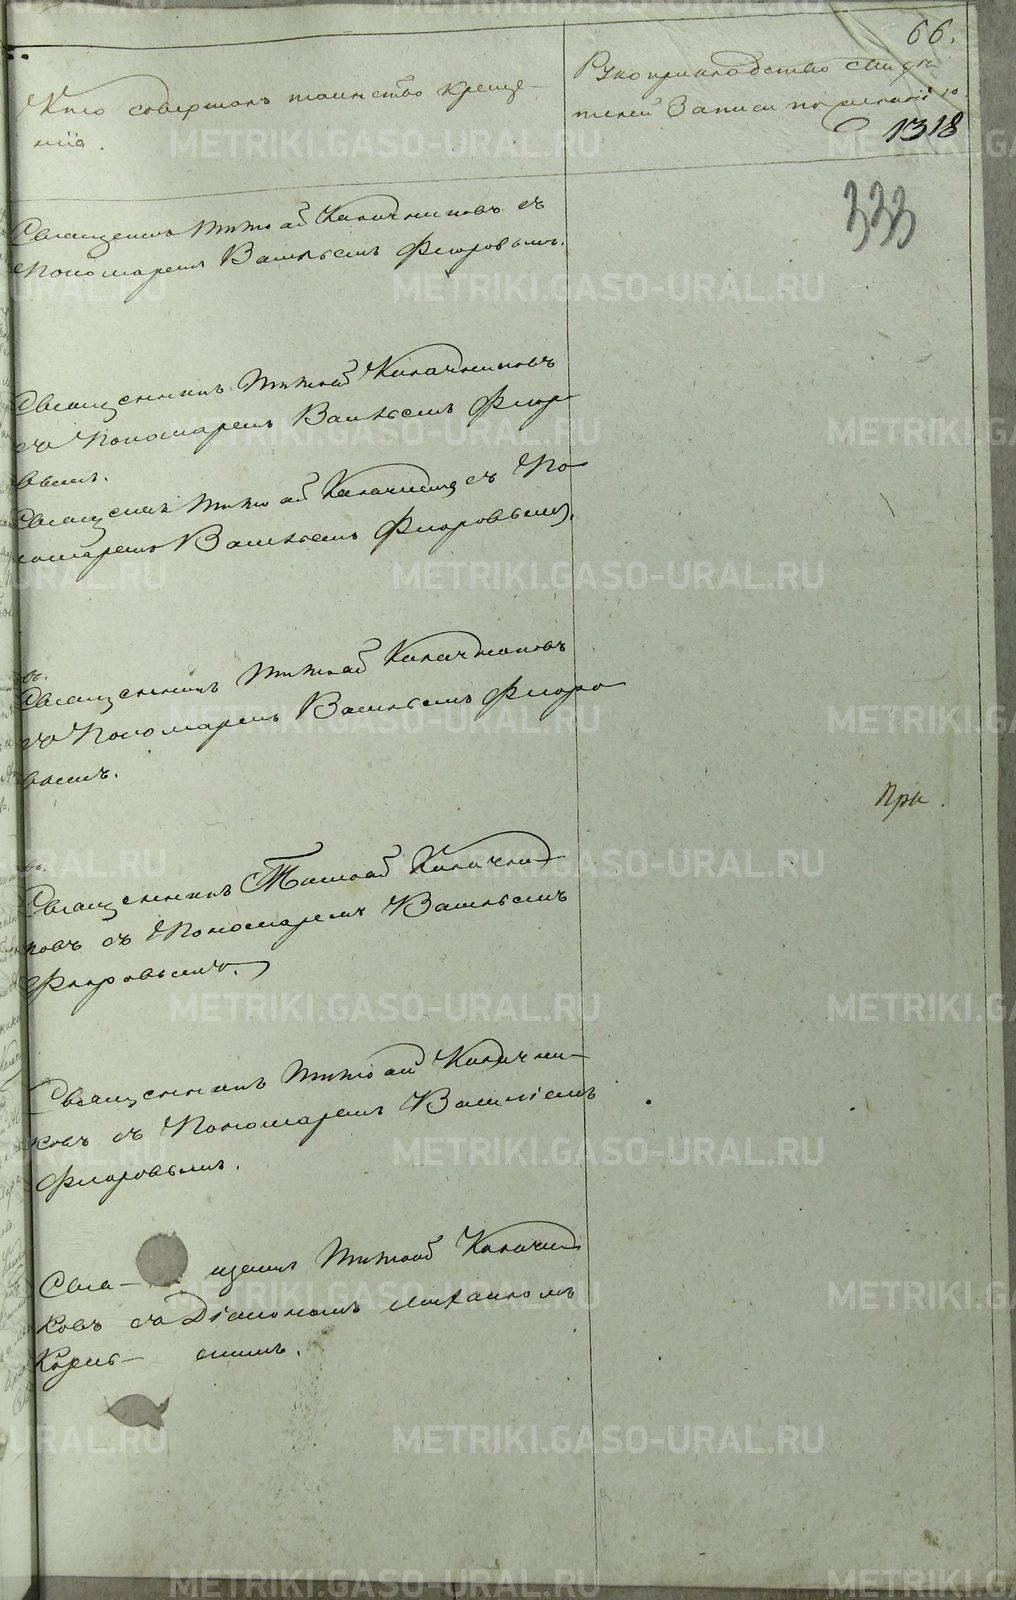 66.
Кто совершалъ таинство креще-
нiя.
Рукоприкладство свидѣ-
телей записи по желанiю.
1318
333
Священникъ Тимофей Калачниковъ съ
Пономаремъ Васильемъ Флоровымъ.
Священникъ Тимофей Калачниковъ
съ Пономаремъ Васильемъ Флоро
вымъ.
Священникъ Тимофей съ По
номаремъ Васильемъ Флоровымъ.
Священникъ Тимофей Калачниковъ
съ Пономаремъ Васильемъ Флоро
вымъ.
При.
Священникъ Тимофей Калачни
ковъ съ Пономаремъ Васильемъ
Флоровымъ.
Священникъ Тимофей Калачни-
ковъ съ Пономаремъ Василiемъ
Флоровымъ.
Свя- щенникъ Тимофей Калачни
ковъ съ Дiакономъ Михаиломъ
METRIKI.GASO-URAL.RU